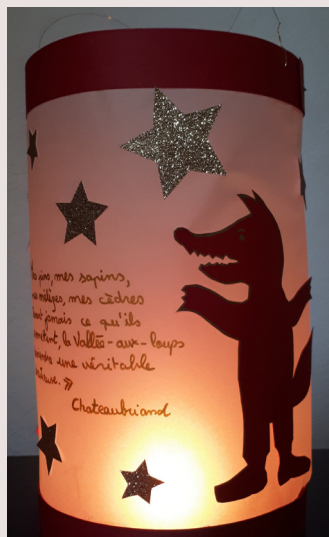 pins, mes sapins,
mélèzes, mes cèdres
jamais ce qu'ils
la Vallée-aux-loups
une véritable
»
Chateaubriand